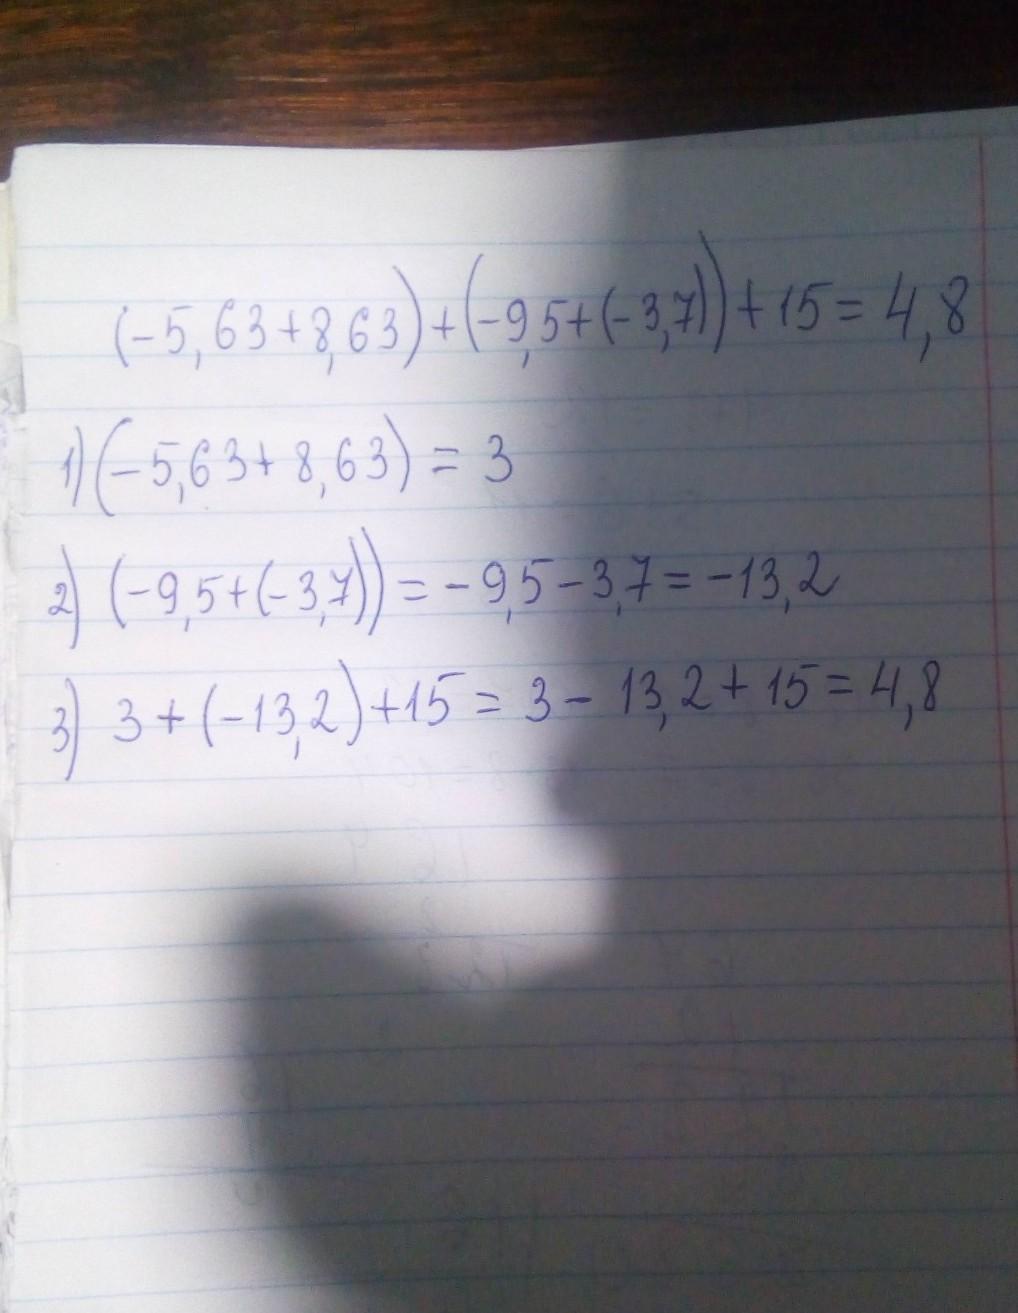 (-5,63+8,63)+(-9,5+(-3,7))+15=4,8
1) (-5,63+8,63)=3
2) (-9,5+(-3,7))=-9,5-3,7=-13,2
3) 3+(-13,2)+15=3-13,2+15=4,8